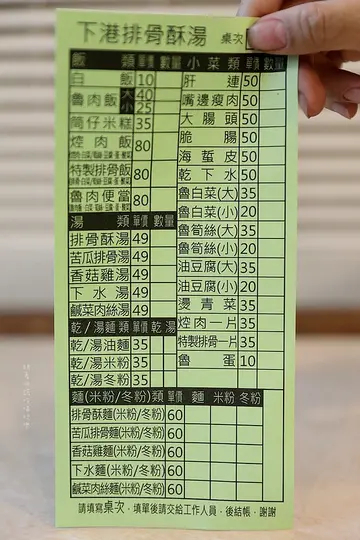 下港排骨酥湯 桌次
飯類 單價 數量 小菜類 單價 數量
白飯 10 肝連 50
魯肉飯 大 40 嘴邊瘦肉 50
小 25 大腸頭 50
筒仔米糕 35 脆腸 50
焢肉飯 80 海蜇皮 50
特製排骨飯 80 乾下水 50
魯肉便當 80 魯白菜(大) 35
魯白菜(小) 20
湯類 單價 數量 魯筍絲(大) 35
排骨酥湯 49 魯筍絲(小) 20
苦瓜排骨湯 49 油豆腐(大) 35
香菇雞湯 49 油豆腐(小) 20
下水湯 49 燙青菜 35
鹹菜肉絲湯 49 焢肉一片 35
乾/湯麵類 單價 乾 湯 特製排骨一片 35
乾/湯油麵 35 魯蛋 10
乾/湯米粉 35
乾/湯冬粉 35
麵(米粉/冬粉)類 單價 麵 米粉 冬粉
排骨酥麵(米粉/冬粉) 60
苦瓜排骨麵(米粉/冬粉) 60
香菇雞麵(米粉/冬粉) 60
下水麵(米粉/冬粉) 60
鹹菜肉絲麵(米粉/冬粉) 60
請填寫桌次，填單後請交給工作人員，後結帳，謝謝